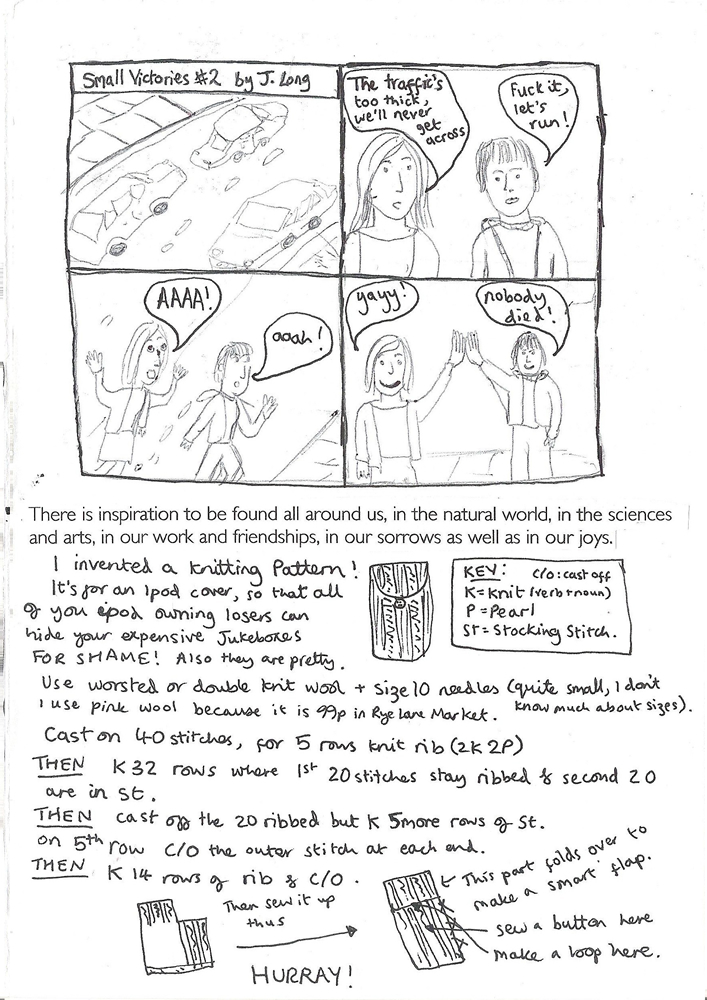 Small Victories #2 by J. Long
The traffic's
too thick,
we'll never
get
across
Fuck it,
let's
run!
AAAA!
aaah!
yayy!
nobody
died!
There is inspiration to be found all around us, in the natural world, in the sciences
and arts, in our work and friendships, in our sorrows as well as in our joys.
I invented a knitting Pattern!
It's for an Ipod cover, so that all
of you ipod owning losers can
hide your expensive Jukeboxes
FOR SHAME! Also they are pretty.
KEY: C/O: cast off
K = Knit (verb + noun)
P = Pearl
St = Stocking Stitch.
Use worsted or double knit wool + size 10 needles (quite small, I don't
know much about sizes).
I use pink wool because it is 99p in Rye Lane Market.
Cast on 40 stitches, for 5 rows knit rib (2K 2P)
THEN K 32 rows where 1st 20 stitches stay ribbed & second 20
are in St.
THEN cast off the 20 ribbed but K 5 more rows of St.
on 5th row C/O the outer stitch at each end.
THEN K 14 rows of rib & C/O.
Then sew it up
thus
This part folds over to
make a smart flap.
sew a button here
make a loop here.
HURRAY!